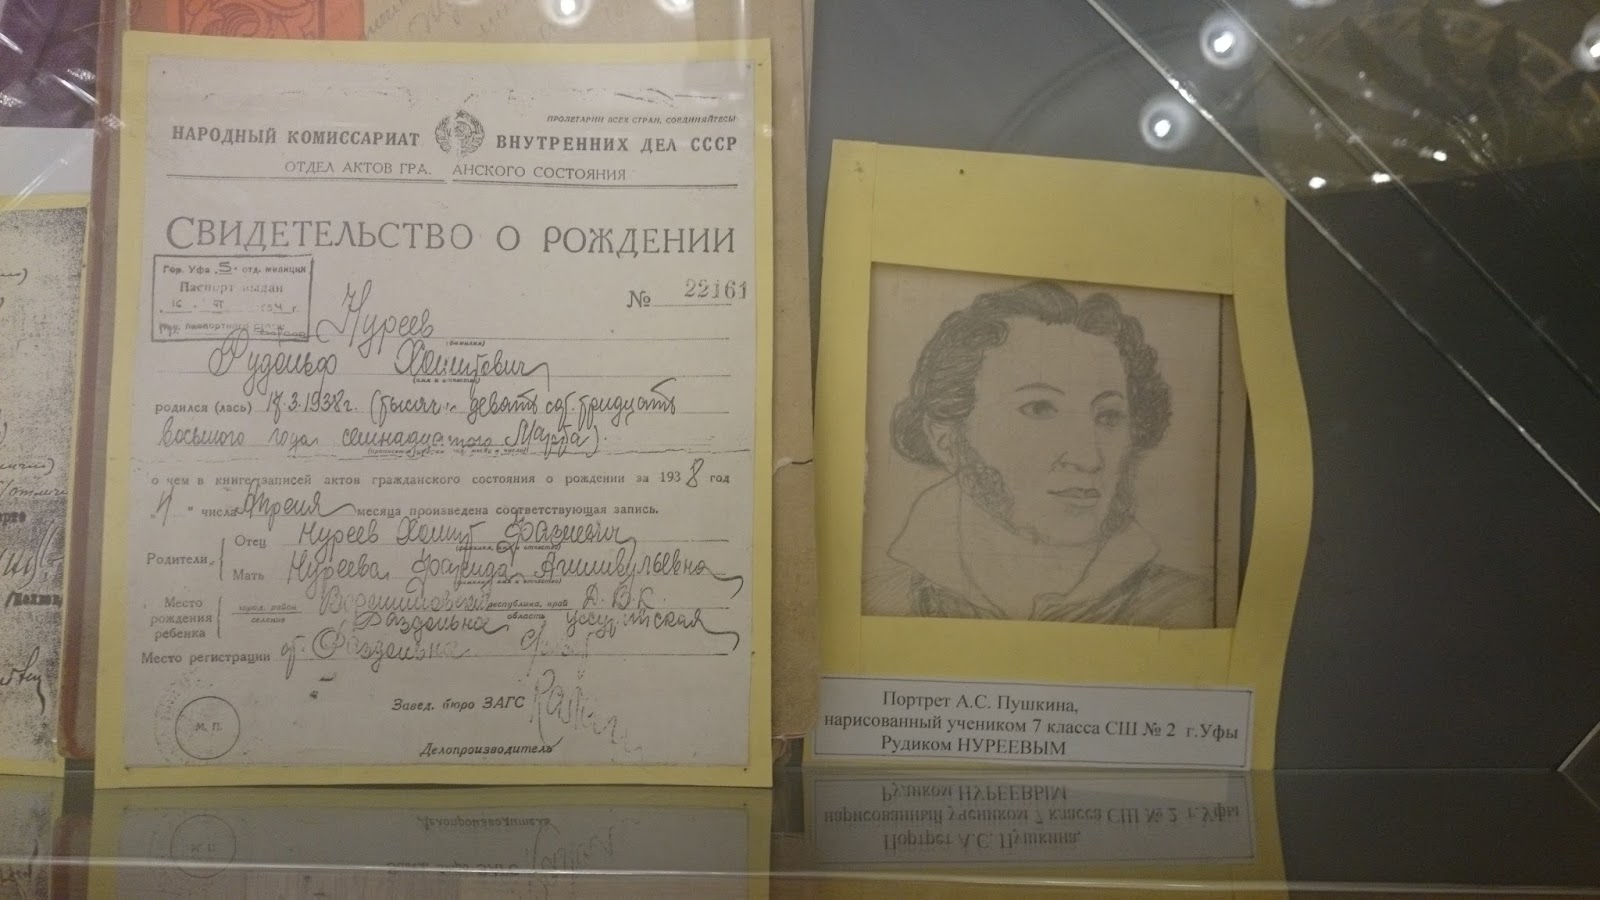 ПРОЛЕТАРИИ ВСЕХ СТРАН, СОЕДИНЯЙТЕСЬ!
НАРОДНЫЙ КОМИССАРИАТ ВНУТРЕННИХ ДЕЛ СССР
ОТДЕЛ АКТОВ ГРА. АНСКОГО СОСТОЯНИЯ
СВИДЕТЕЛЬСТВО О РОЖДЕНИИ
Гор. Уфа 5 отд. милиции
Паспорт выдан
№ 22161
Нуреев
(фамилия)
Рудольф Хамитович
(имя и отчество)
родился (лась) 17.3.1938г. (тысяч девятьсот тридцать
восьмого года семнадцатого Марта).
о чем в книге записей актов гражданского состояния о рождении за 1938 год
числа Апреля месяца произведена соответствующая запись.
Родители
Отец Нуреев Хамит
Мать Нуреева Фарида
Место рождения ребенка
город, район
селение
республика, край Д.В.К.
Раздольное область Уссурийская
Место регистрации
Завед. бюро ЗАГС
М. П.
Делопроизводитель
Портрет А.С. Пушкина,
нарисованный учеником 7 класса СШ № 2 г.Уфы
Рудиком НУРЕЕВЫМ